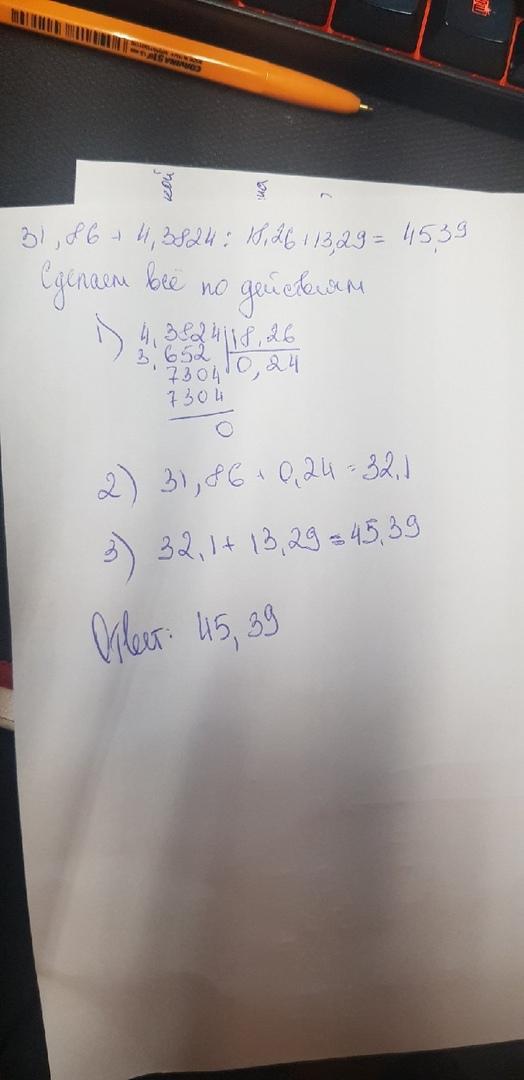 CORVINA 51
кой
на
31,86 + 4,3824 : 18,26 + 13,29 = 45,39
Сделаем всё по действиям
1) 4,3824 | 18,26
3,652 | 0,24
7304
7304
0
2) 31,86 + 0,24 = 32,1
3) 32,1 + 13,29 = 45,39
Ответ: 45,39